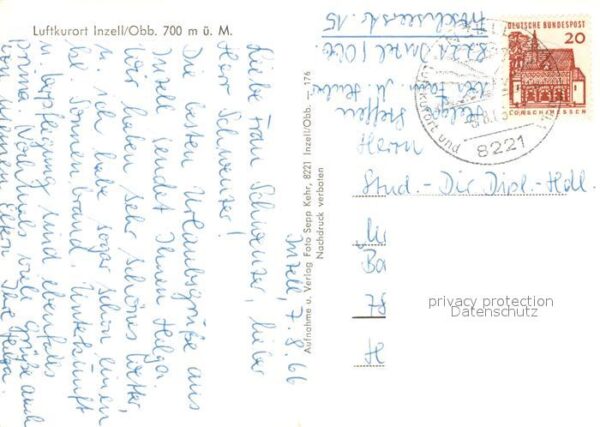 Luftkurort Inzell/Obb. 700 m ü. M.
Inzell, 7.8.66
Liebe Frau Schwenzer, lieber
Herr Schwenzer!
Die besten Urlaubsgrüße aus
Inzell sendet Ihnen Helga.
Wir haben sehr schönes Wetter,
u. ich habe sogar schon einen
Sonnenbrand. Unterkunft
u. Verpflegung sind ebenfalls
prima. Nochmals viele Grüße auch
von meinen Eltern Ihre Helga.
Aufnahme u. Verlag Foto Sepp Kehr, 8221 Inzell/Obb. — 176
Nachdruck verboten
8221 Inzell/Obb.
DEUTSCHE BUNDESPOST
20
LORSCH/HESSEN
LUFTKURORT UND
8221
Herrn
Stud.-Dir. Dipl.-Hdl.
privacy protection
Datenschutz